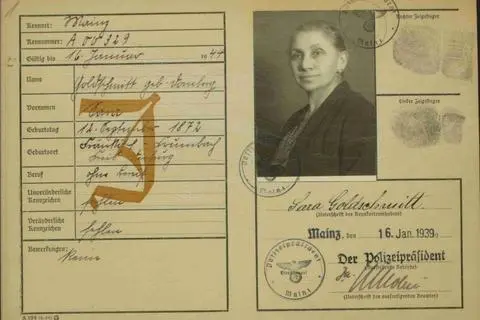 Kennort: Mainz
Kennnummer: A 00329
Gültig bis 16. Januar 1944
Name Goldschmitt geb.
Vornamen Sara
J
Geburtstag 12. September 1872
Geburtsort Fränkisch Crumbach
Beruf ohne Beruf
Unveränderliche Kennzeichen fehlen
Veränderliche Kennzeichen fehlen
Bemerkungen: keine
Rechter Zeigefinger
Linker Zeigefinger
Mainz
Sara Goldschmitt
(Unterschrift des Kennkarteninhabers)
Mainz, den 16. Jan. 1939
Der Polizeipräsident
(Ausstellende Behörde)
(Unterschrift des ausfertigenden Beamten)
Polizeipräsident
Mainz